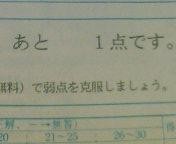 あと 1点です。
無料）で弱点を克服しましょう。
解、一→無答）
20 21～25 26～30 得